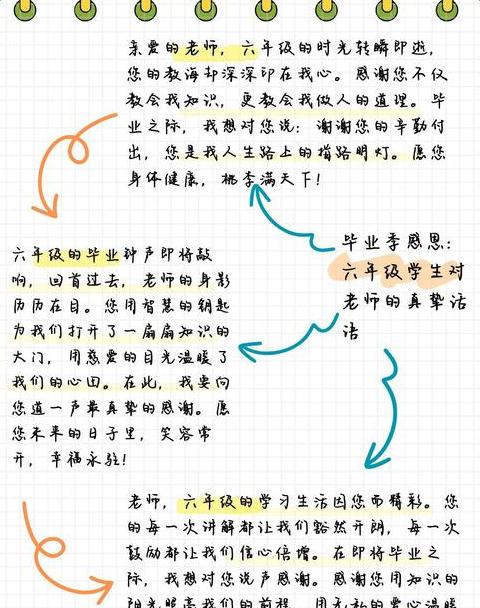 亲爱的老师，六年级的时光转瞬即逝，
您的教诲却深深印在我心。感谢您不仅
教会我知识，更教会我做人的道理。毕
业之际，我想对您说：谢谢您的辛勤付
出，您是我人生路上的指路明灯。愿您
身体健康，桃李满天下！
毕业季感恩：
六年级学生对
老师的真挚话
语
六年级的毕业钟声即将敲
响，回首过去，老师的身影
历历在目。您用智慧的钥匙
为我们打开了一扇扇知识的
大门，用慈爱的目光温暖了
我们的心田。在此，我要向
您道一声最真挚的感谢。愿
您未来的日子里，笑容常
开，幸福永驻！
老师，六年级的学习生活因您而精彩。您
的每一次讲解都让我们豁然开朗，每一次
鼓励都让我们信心倍增。在即将毕业之
际，我想对您说声感谢。感谢您用知识的
阳光照亮我们的前程，用无私的爱心温暖